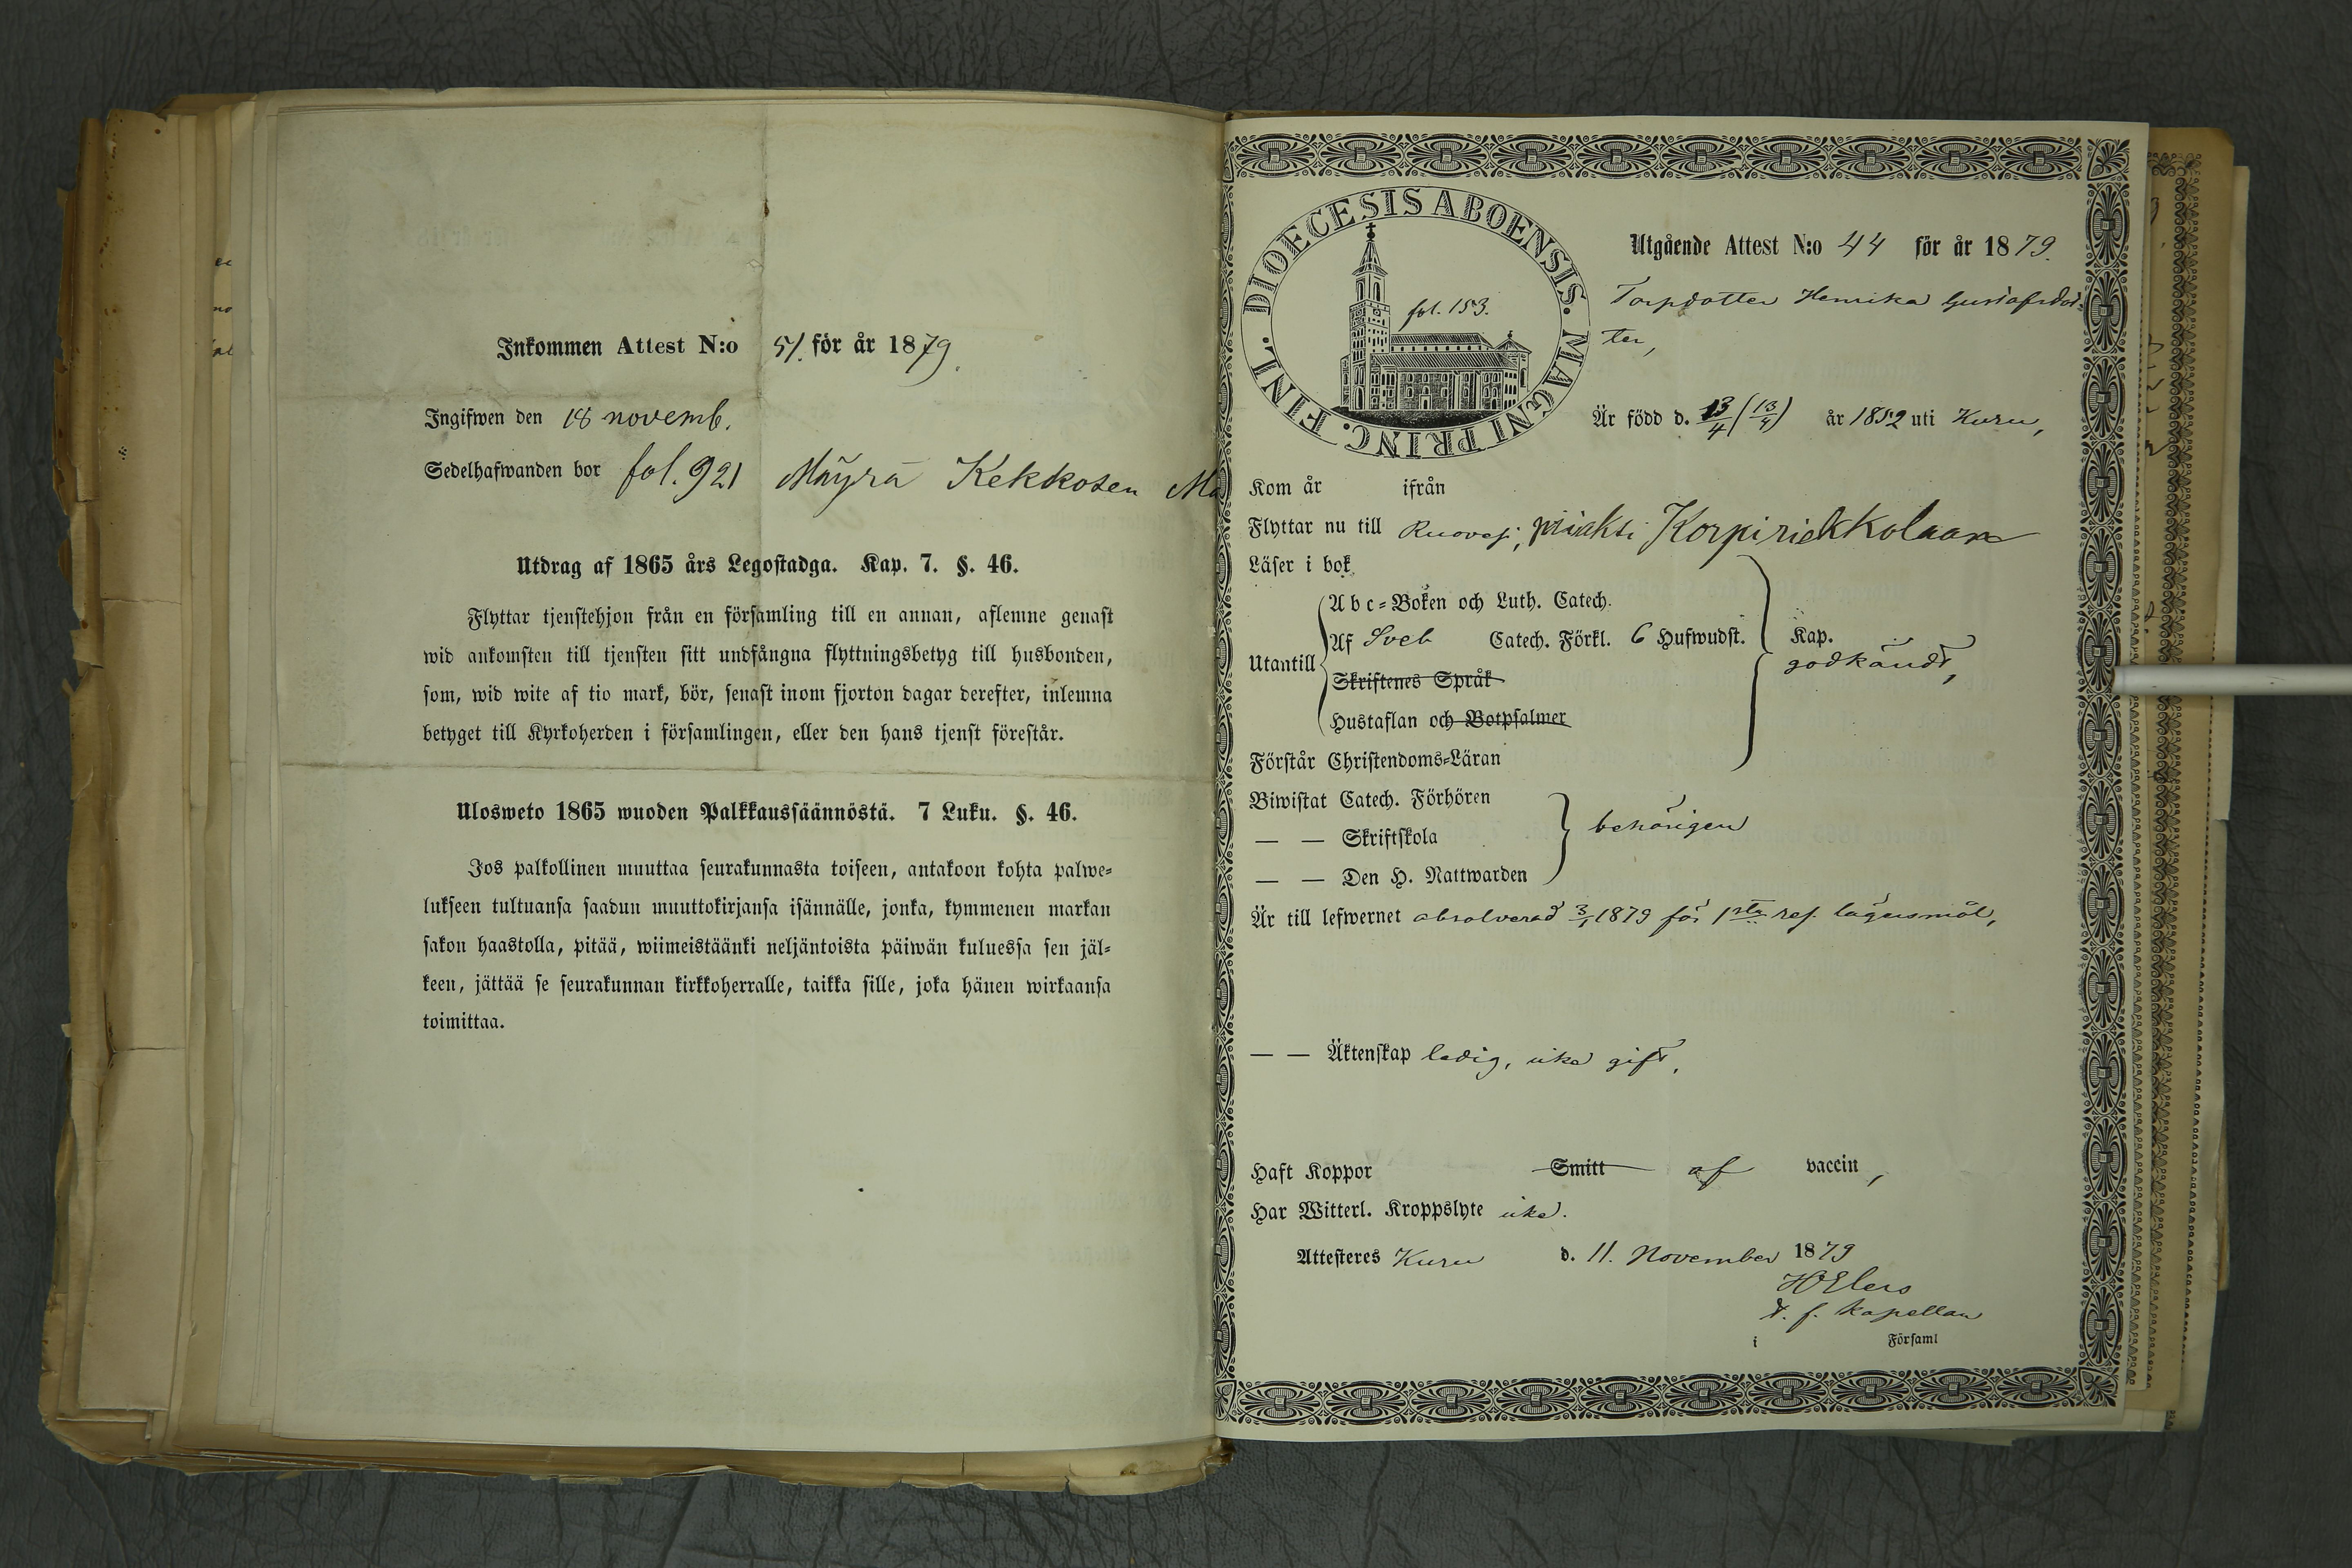 Inkommen Attest N:o 51. för år 1879.
Ingifwen den 18 novemb.
Sedelhafwanden bor fol. 921 Mäyrä Kekkosen Ma
Utdrag af 1865 års Legostadga. Kap. 7. §. 46.
Flyttar tjenstehjon från en församling till en annan, aflemne genast
wid ankomsten till tjensten sitt undfångna flyttningsbetyg till husbonden,
som, wid wite af tio mark, bör, senast inom fjorton dagar derefter, inlemna
betyget till Kyrkoherden i församlingen, eller den hans tjenst förestår.
Ulosweto 1865 wuoden Palkkaussäännöstä. 7 Luku. §. 46.
Jos palkollinen muuttaa seurakunnasta toiseen, antakoon kohta palwe-
lukseen tultuansa saadun muuttokirjansa isännälle, jonka, kymmenen markan
sakon haastolla, pitää, wiimeistäänki neljäntoista päiwän kuluessa sen jäl-
keen, jättää se seurakunnan kirkkoherralle, taikka sille, joka hänen wirkaansa
toimittaa.
DIOECESIS ABOENSIS. MAGNI PRINC. FINL.
fol. 153.
Utgående Attest N:o 44 för år 1879.
Torpdotter Henrika Gustafsdot-
ter,
Är född d. 13/4 (13/4) år 1852 uti Kuru,
Kom år ifrån
Flyttar nu till Ruovesi, Korpiriekkolaan
Läser i bok
Utantill
Abc-Boken och Luth. Catech.
Af Sveb Catech. Förkl. 6 Hufwudst.
Skriftenes Språk
Hustaflan och Botpsalmer
Kap.
godkändt,
Förstår Christendoms-Läran
Biwistat Catech. Förhören
— — Skriftskola
— — Den H. Nattwarden
behörigen
Är till lefwernet absolverad 3/1 1879 för 1sta res. lägersmål,
— — Äktenskap ledig, icke gift,
Haft Koppor Smitt af vaccin,
Har Witterl. Kroppslyte icke.
Attesteres Kuru d. 11. November 1879
HElers
t. f. kapellan
i Församl